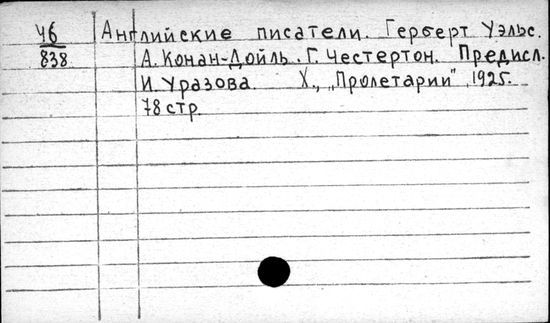 Ч6 Английские писатели. Герберт Уэльс.
838 А. Конан-Дойль. Г. Честертон. Предисл.
И. Уразова. Х., „Пролетарий", 1925.
78 стр.